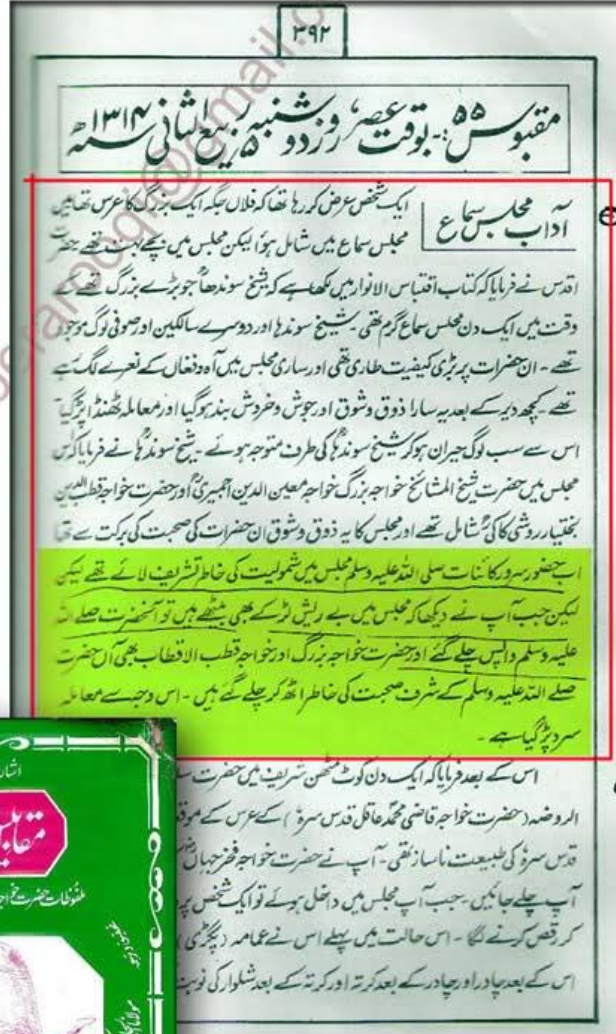 ۳۹۲
مقبوس ۵۵:- بوقت عصر، روز دوشنبہ ۵ ربیع الثانی ۱۳۱۴ھ سنہ
آداب مجلس سماع
ایک شخص عرض کر رہا تھا کہ فلاں جگہ ایک بزرگ کا عرس تھا میں
مجلس سماع میں شامل ہوا لیکن مجلس میں بچے بہت تھے حضرت
اقدس نے فرمایا کہ کتاب اقتباس الانوار میں لکھا ہے کہ شیخ سوندھاؒ جو بڑے بزرگ تھے کے
وقت میں ایک دن مجلس سماع گرم تھی۔ شیخ سوندہا اور دوسرے سالکین اور صوفی لوگ موجود
تھے۔ ان حضرات پر بڑی کیفیت طاری تھی اور ساری مجلس میں آہ و فغاں کے نعرے لگ رہے
تھے۔ کچھ دیر کے بعد یہ سارا ذوق و شوق اور جوش و خروش بند ہو گیا اور معاملہ ٹھنڈا پڑ گیا
اس سے سب لوگ حیران ہو کر شیخ سوندہاؒ کی طرف متوجہ ہوئے۔ شیخ سوندہاؒ نے فرمایا کہ اس
مجلس میں حضرت شیخ المشائخ خواجہ بزرگ خواجہ معین الدین اجمیریؒ اور حضرت خواجہ قطب الدین
بختیار روشی کاکیؒ شامل تھے اور مجلس کا یہ ذوق و شوق ان حضرات کی صحبت کی برکت سے تھا
اب حضور سرور کائنات صلی اللہ علیہ وسلم مجلس میں شمولیت کی خاطر تشریف لائے تھے لیکن
لیکن جب آپ نے دیکھا کہ مجلس میں بے ریش لڑکے بھی بیٹھے ہیں تو آنحضرت صلے اللہ
علیہ وسلم واپس چلے گئے اور حضرت خواجہ بزرگ اور خواجہ قطب الاقطاب بھی آں حضرت
صلے اللہ علیہ وسلم کے شرف صحبت کی خاطر اٹھ کر چلے گئے ہیں۔ اس وجہ سے معاملہ
سرد پڑ گیا ہے۔
اس کے بعد فرمایا کہ ایک دن کوٹ مٹھن شریف میں حضرت
الروضہ (حضرت خواجہ قاضی محمد عاقل قدس سرہ) کے عرس کے
قدس سرہٗ کی طبیعت ناساز تھی۔ آپ نے حضرت خواجہ فخر جہاں
آپ چلے جائیں۔ جب آپ مجلس میں داخل ہوئے تو ایک شخص
کر رقص کرنے لگا۔ اس حالت میں پہلے اس نے عمامہ (پگڑی)
اس کے بعد چادر اور چادر کے بعد کرتہ اور کرتہ کے بعد شلوار کی نوبت
ملفوظات حضرت خواجہ